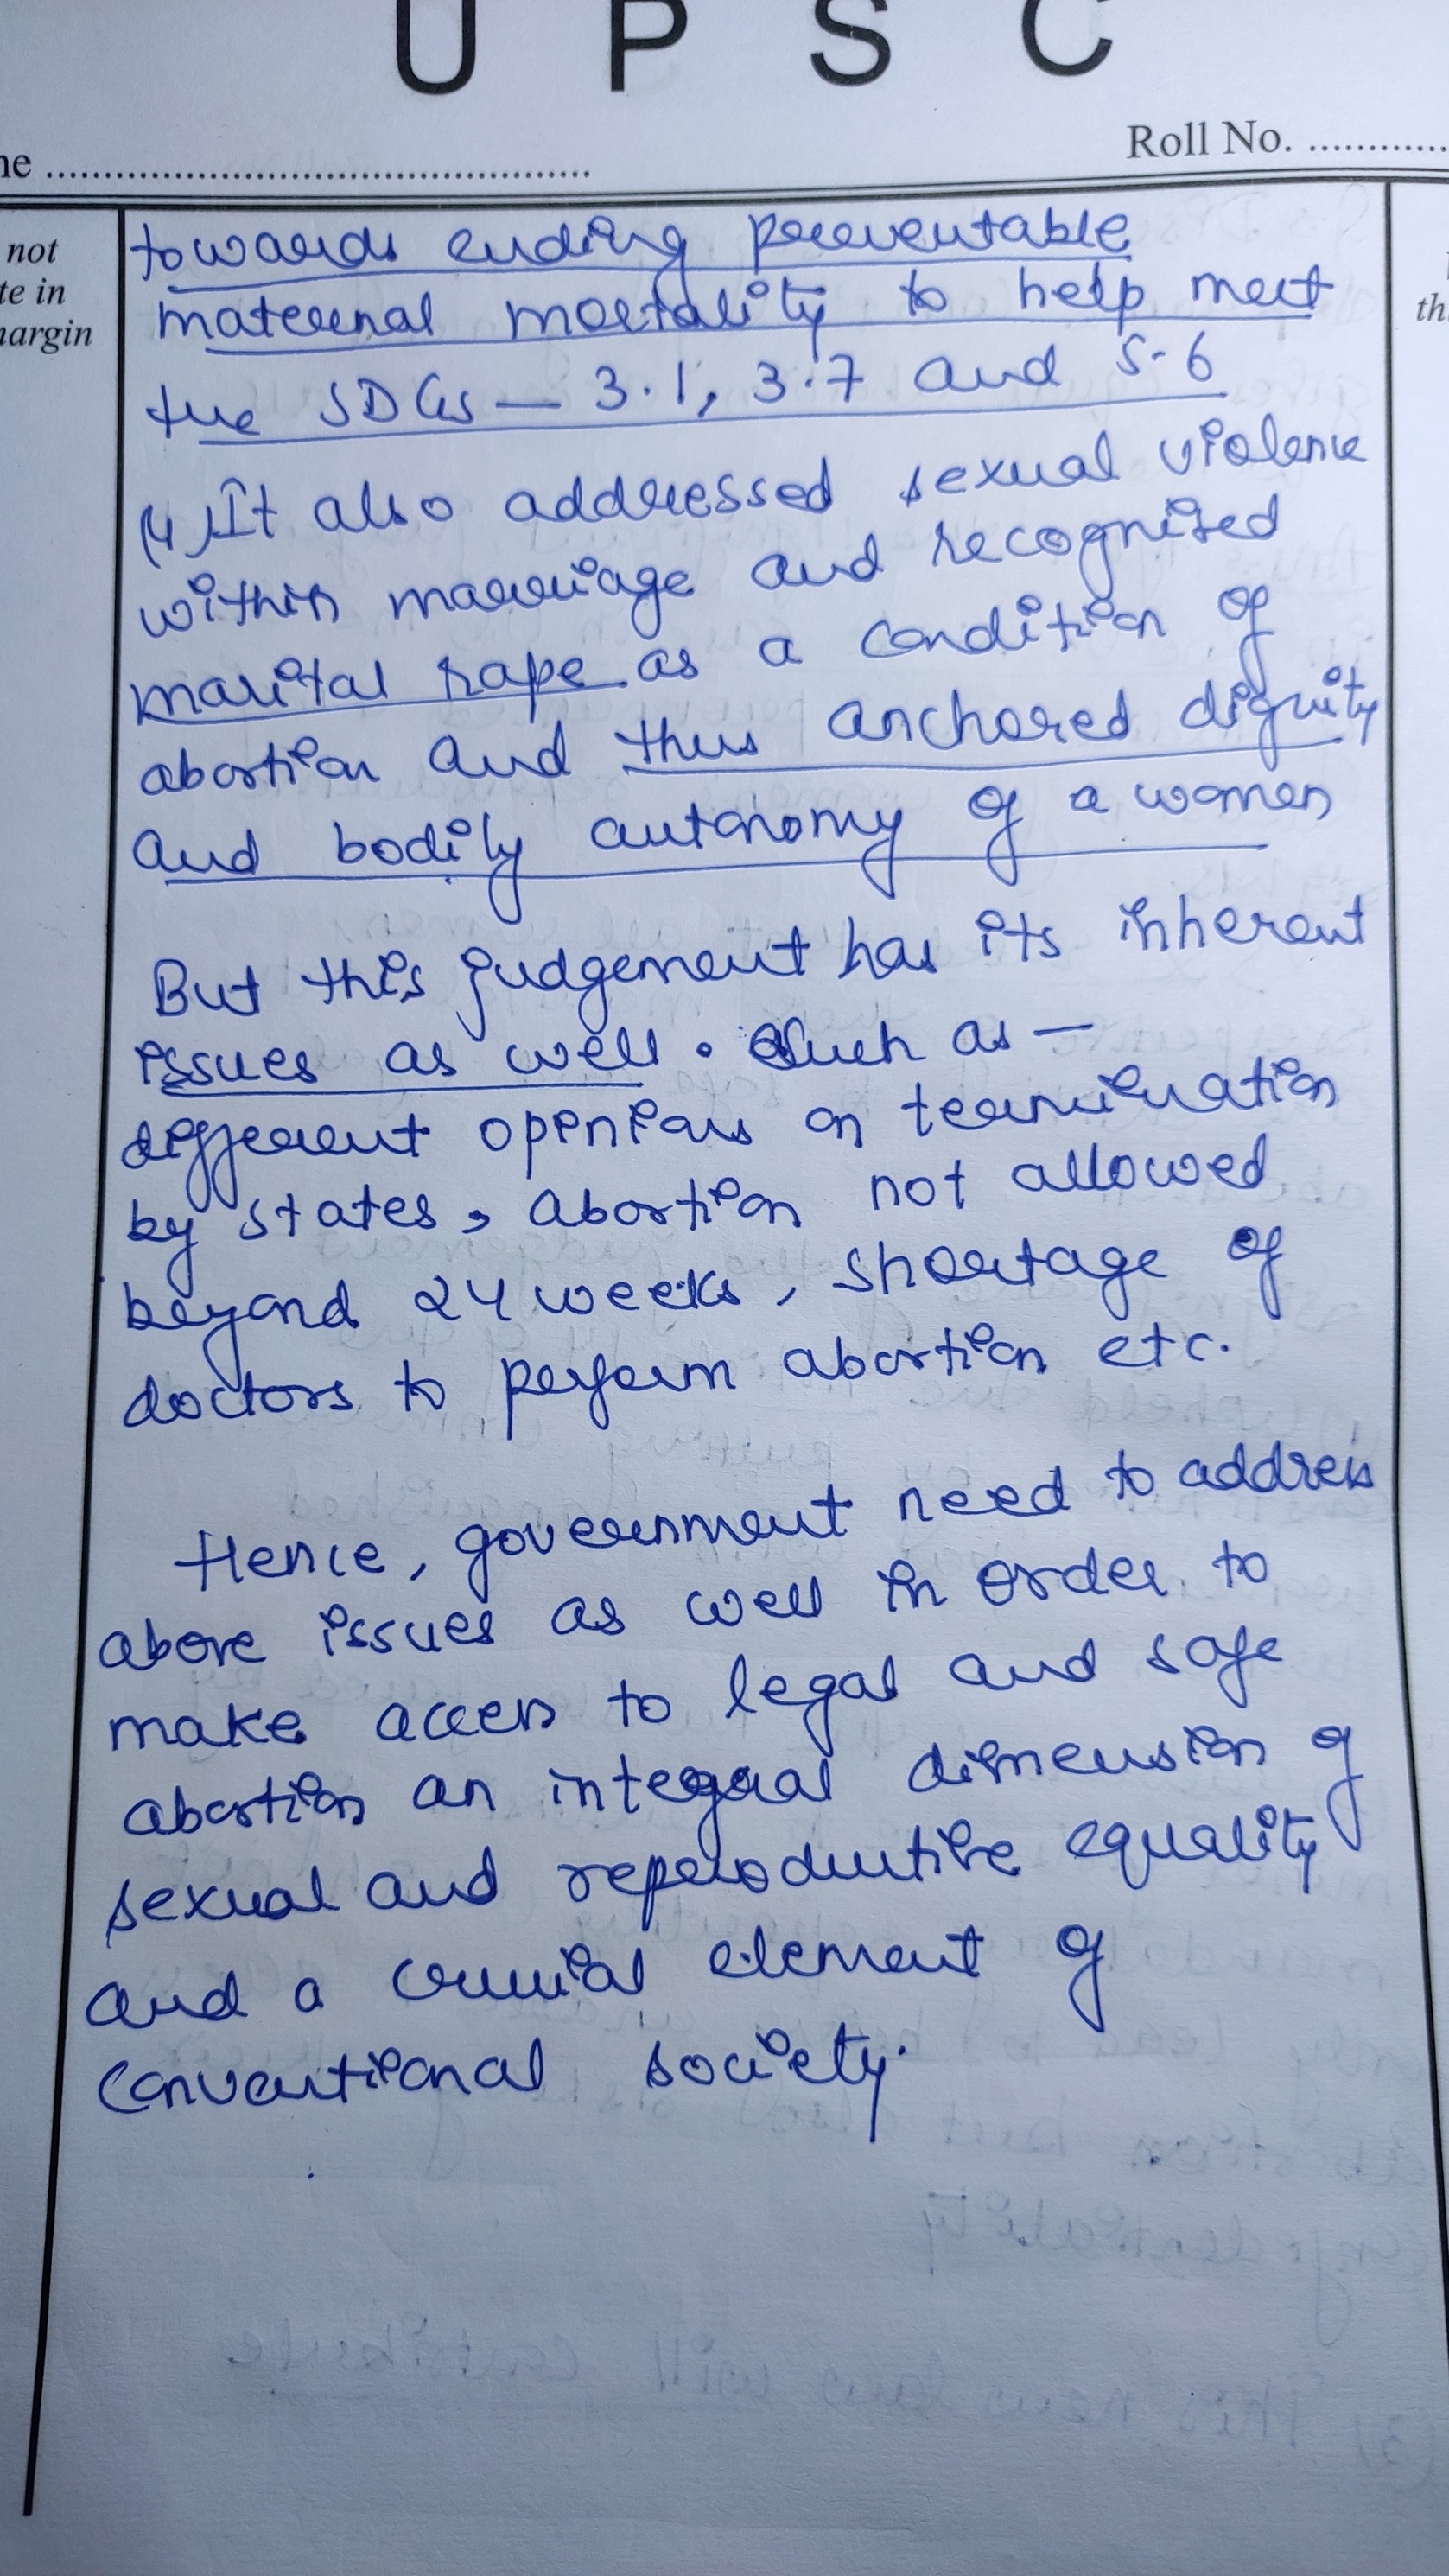 U P S C
Roll No. ............
ne ........................................
not
te in
nargin
th
towards ending preventable
maternal mortality to help meet
the SDGs — 3.1, 3.7 and 5.6
(4) It also addressed sexual violence
within marriage and recognized
marital rape as a condition of
abortion and thus anchored dignity
and bodily autonomy of a women
But this judgement has its inherent
issues as well. Such as —
different opinions on termination
by states, abortion not allowed
beyond 24 weeks, shortage of
doctors to perform abortion etc.
Hence, government need to address
above issues as well in order to
make access to legal and safe
abortion an integral dimension of
sexual and reproductive equality
and a crucial element of
conventional society.